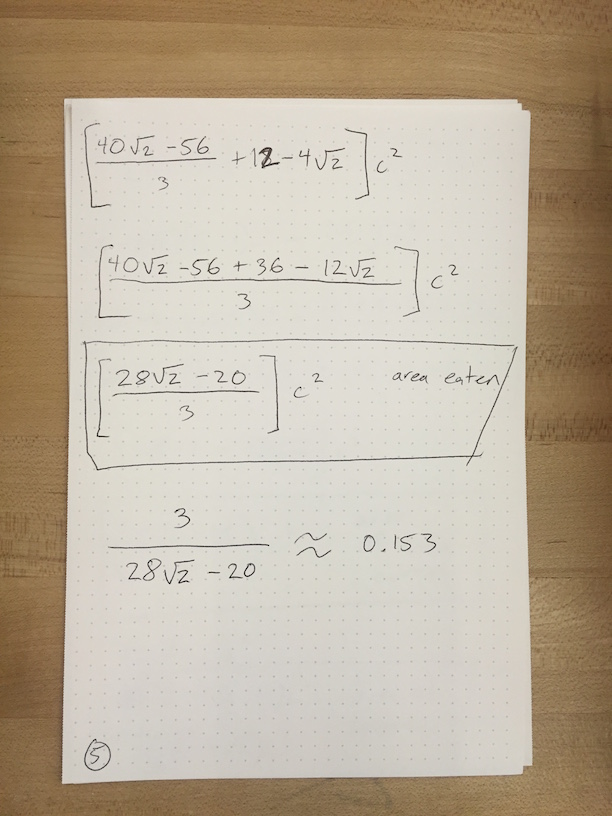 [(40√2 - 56)/3 + 12 - 4√2] c²
[(40√2 - 56 + 36 - 12√2)/3] c²
[(28√2 - 20)/3] c² area eaten
3/(28√2 - 20) ≈ 0.153
5